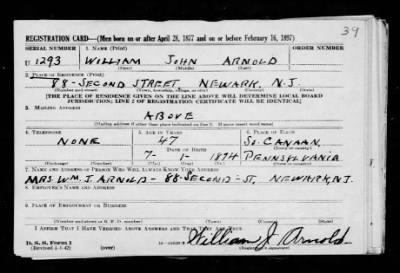 39
REGISTRATION CARD—(Men born on or after April 28, 1877 and on or before February 16, 1897)
SERIAL NUMBER 1. NAME (Print)
U 1293 WILLIAM JOHN ARNOLD
2. PLACE OF RESIDENCE (Print)
88-SECOND STREET NEWARK, N.J.
[THE PLACE OF RESIDENCE GIVEN ON THE LINE ABOVE WILL DETERMINE LOCAL BOARD
JURISDICTION; LINE 2 OF REGISTRATION CERTIFICATE WILL BE IDENTICAL]
3. MAILING ADDRESS
ABOVE
[Mailing address if other than place indicated on line 2. If same insert word same]
4. TELEPHONE 5. AGE IN YEARS 6. PLACE OF BIRTH
NONE 47 SO. CANAAN,
DATE OF BIRTH
7- 1- 1894 PENNSYLVANIA
(Exchange) (Number) (Mo.) (Day) (Yr.) (State or country)
7. NAME AND ADDRESS OF PERSON WHO WILL ALWAYS KNOW YOUR ADDRESS
MRS. WM. J. ARNOLD - 88-SECOND-ST. NEWARK, N.J.
8. EMPLOYER'S NAME AND ADDRESS
9. PLACE OF EMPLOYMENT OR BUSINESS
(Number and street or R. F. D. number) (Town) (County) (State)
I AFFIRM THAT I HAVE VERIFIED ABOVE ANSWERS AND THAT THEY ARE TRUE.
D. S. S. Form 1
(Revised 4-1-42) (over)
William J. Arnold